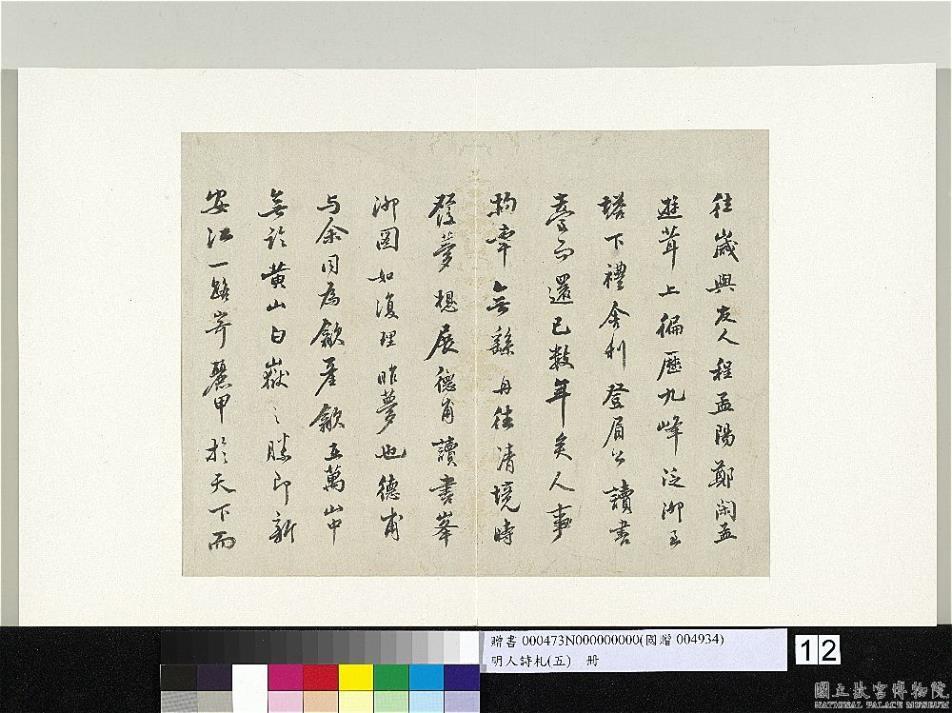 往歲與友人程孟陽鄭閑孟
遊茸上徧歷九峰泛泖至
塔下禮舍利登眉公讀書
臺而還已數年矣人事
拘牽無繇再往清境時
發夢想展德甫讀書峯
泖圖如復理昨夢也德甫
与余同為歙產歙在萬山中
無論黃山白嶽之勝即新
安江一路奇麗甲於天下而
贈書 000473N000000000(國贈 004934)
明人詩札(五) 冊
12
國立故宮博物院
NATIONAL PALACE MUSEUM